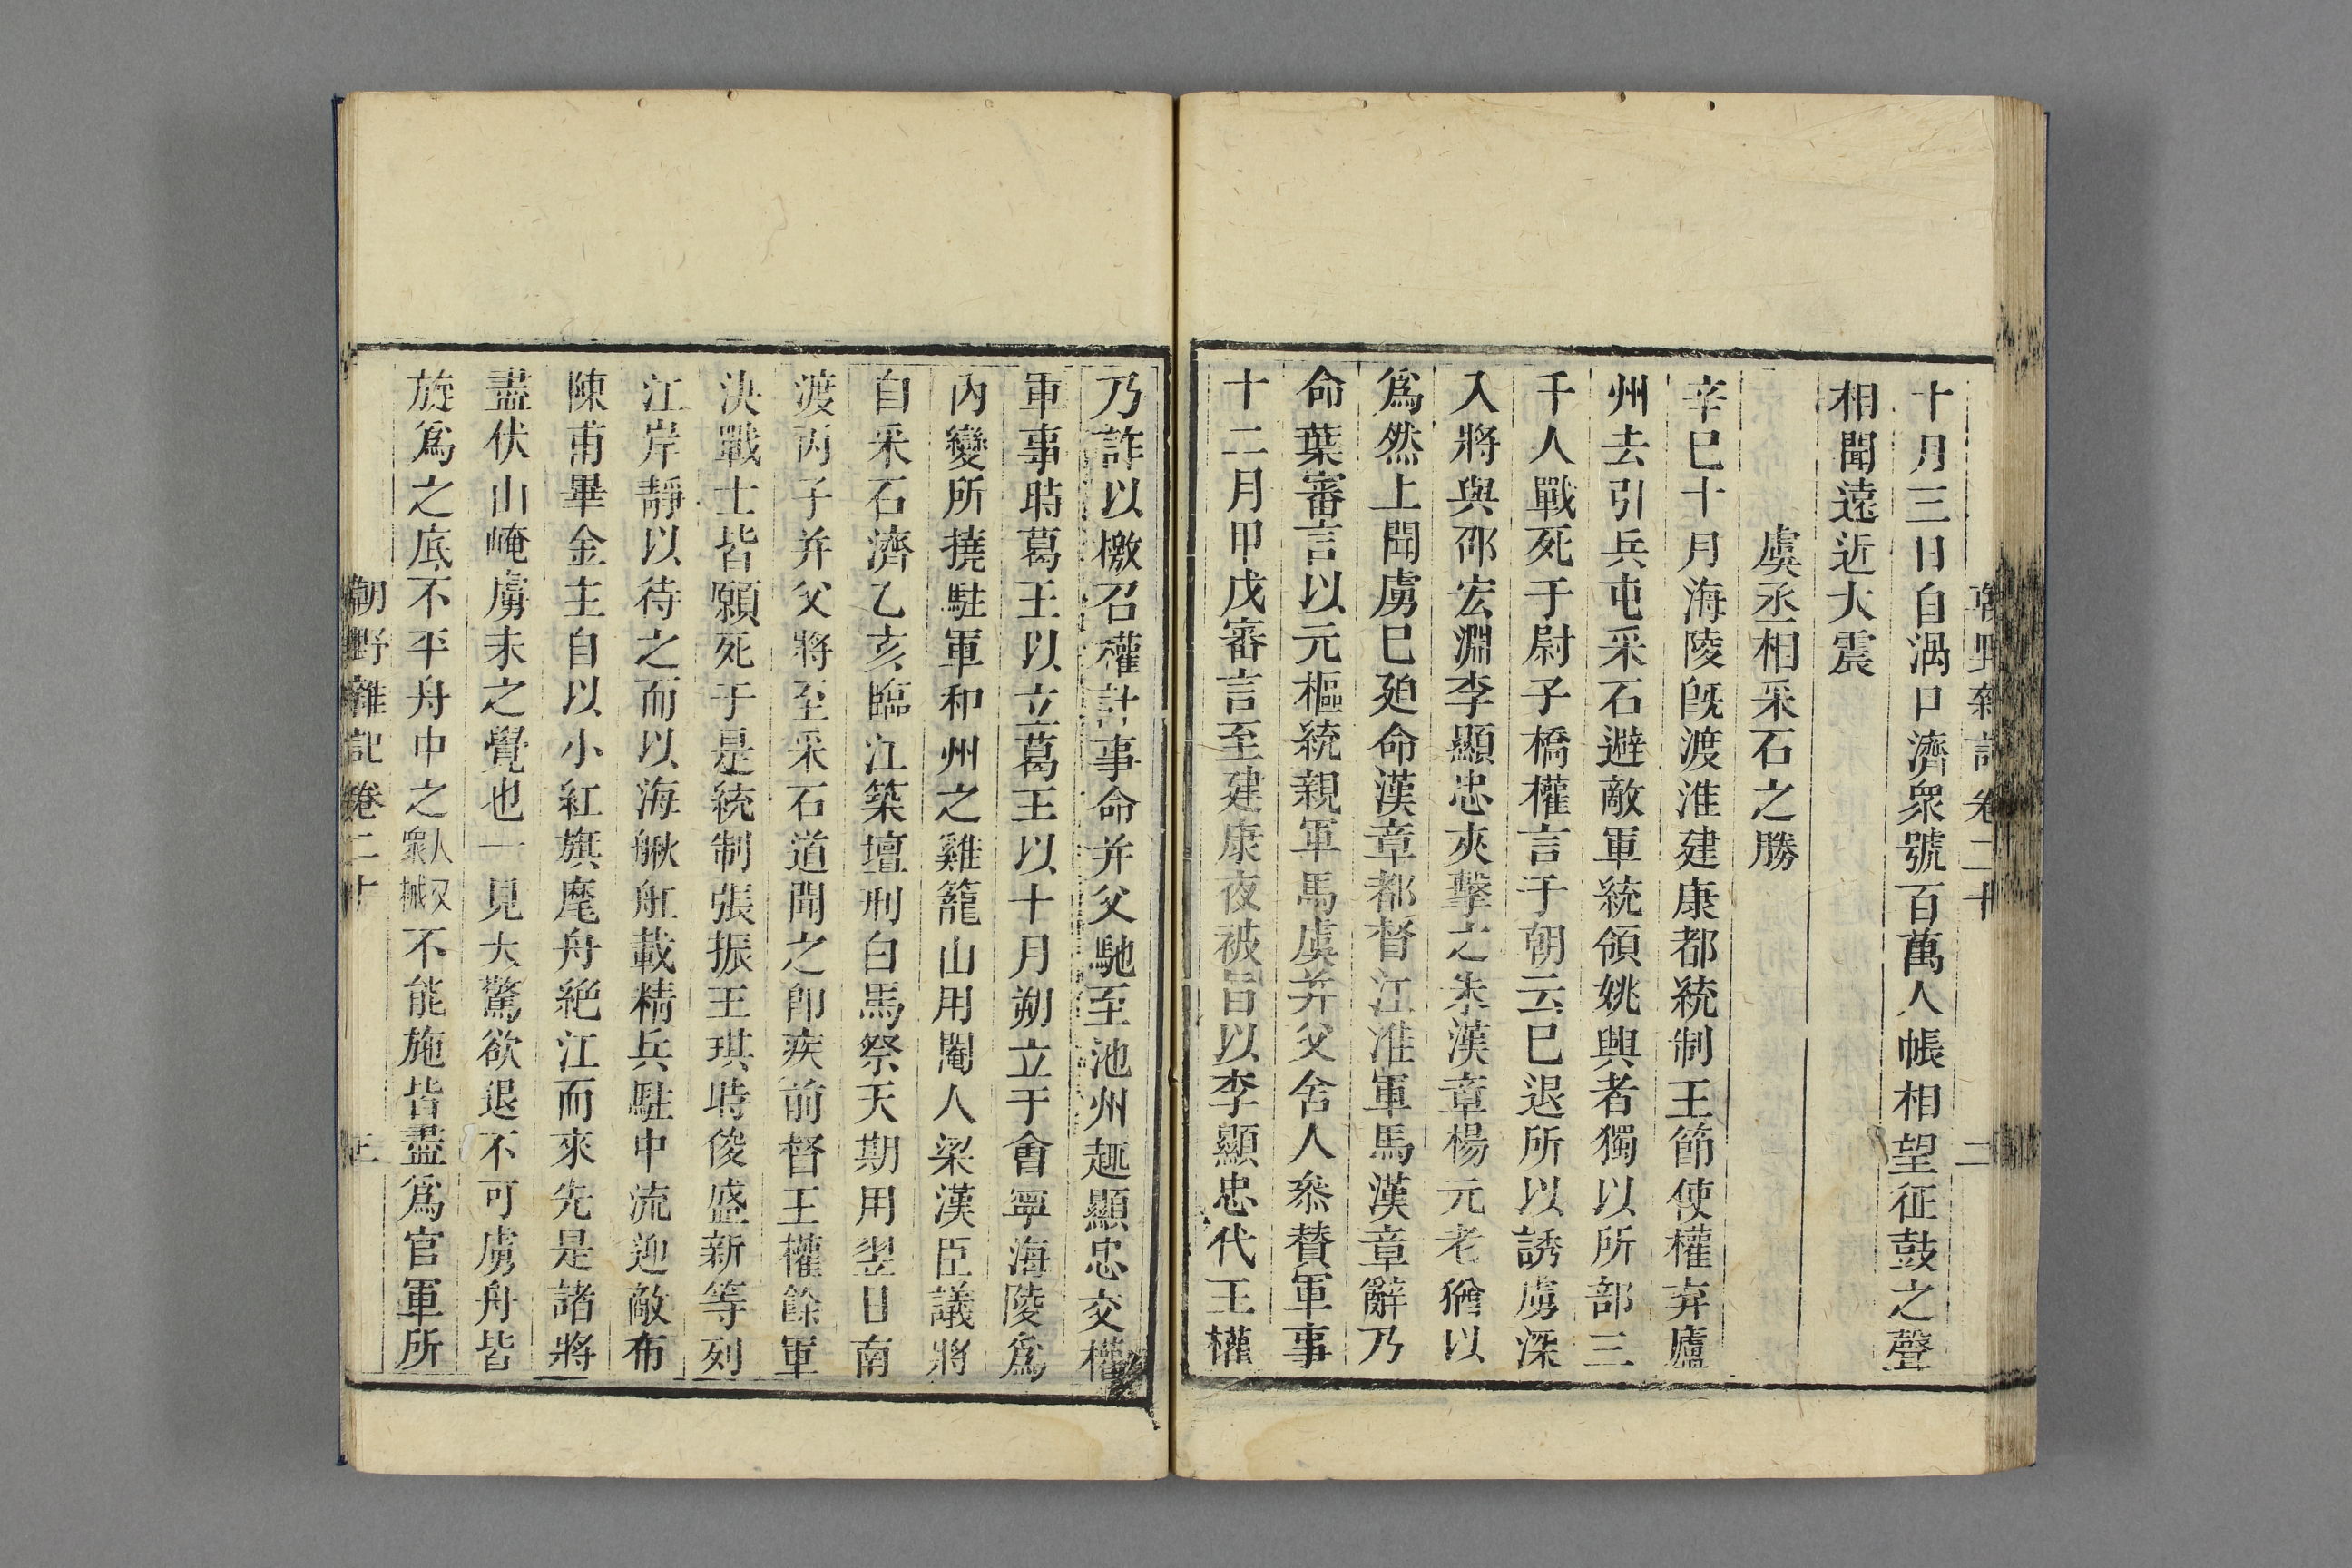 朝野雜記卷二十 二
十月三日自渦口濟衆號百萬人帳相望征鼓之聲
相聞遠近大震
虞丞相采石之勝
辛巳十月海陵旣渡淮建康都統制王節使權弃廬
州去引兵屯采石避敵軍統領姚興者獨以所部三
千人戰死于尉子橋權言于朝云巳退所以誘虜深
入將與邵宏淵李顯忠夾擊之朱漢章楊元老猶以
爲然上聞虜巳廹命漢章都督江淮軍馬漢章辭乃
命葉審言以元樞統親軍馬虞并父舍人叅賛軍事
十二月甲戊審言至建康夜被旨以李顯忠代王權
乃詐以檄召權計事命并父馳至池州趣顯忠交權
軍事時葛王以立葛王以十月朔立于會寧海陵爲
內變所撓駐軍和州之雞籠山用閹人梁漢臣議將
自采石濟乙亥臨江築壇刑白馬祭天期用翌日南
渡丙子并父將至采石道聞之卽疾前督王權餘軍
決戰士皆願死于是統制張振王琪時俊盛新等列
江岸靜以待之而以海鰍舡載精兵駐中流迎敵布
陳甫畢金主自以小紅旗麾舟絕江而來先是諸將
盡伏山崦虜未之覺也一見大驚欲退不可虜舟皆
旋爲之底不平舟中之人衆又械不能施皆盡爲官軍所
朝野雜記卷二十 三